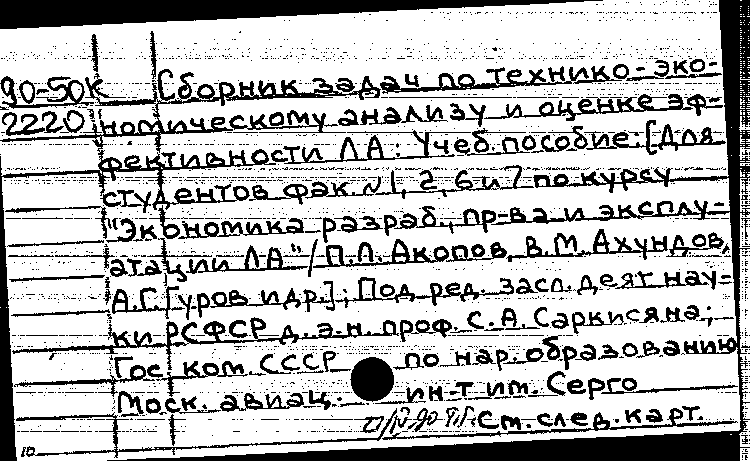 90-50К Сборник задач по технико-эко-
2220 номическому анализу и оценке эф-
фективности ЛА: Учеб. пособие: [Для
студентов фак. №1, 2, 6 и 7 по курсу
"Экономика разраб., пр-ва и эксплу-
атации ЛА" / П.Л. Акопов, В.М. Ахундов,
А.Г. Гуров и др.]; Под ред. засл. деят нау-
ки РСФСР д. э. н. проф. С. А. Саркисяна;
Гос ком. СССР по нар. образованию
Моск. авиац. ин-т им. Серго
См. след. карт.
10